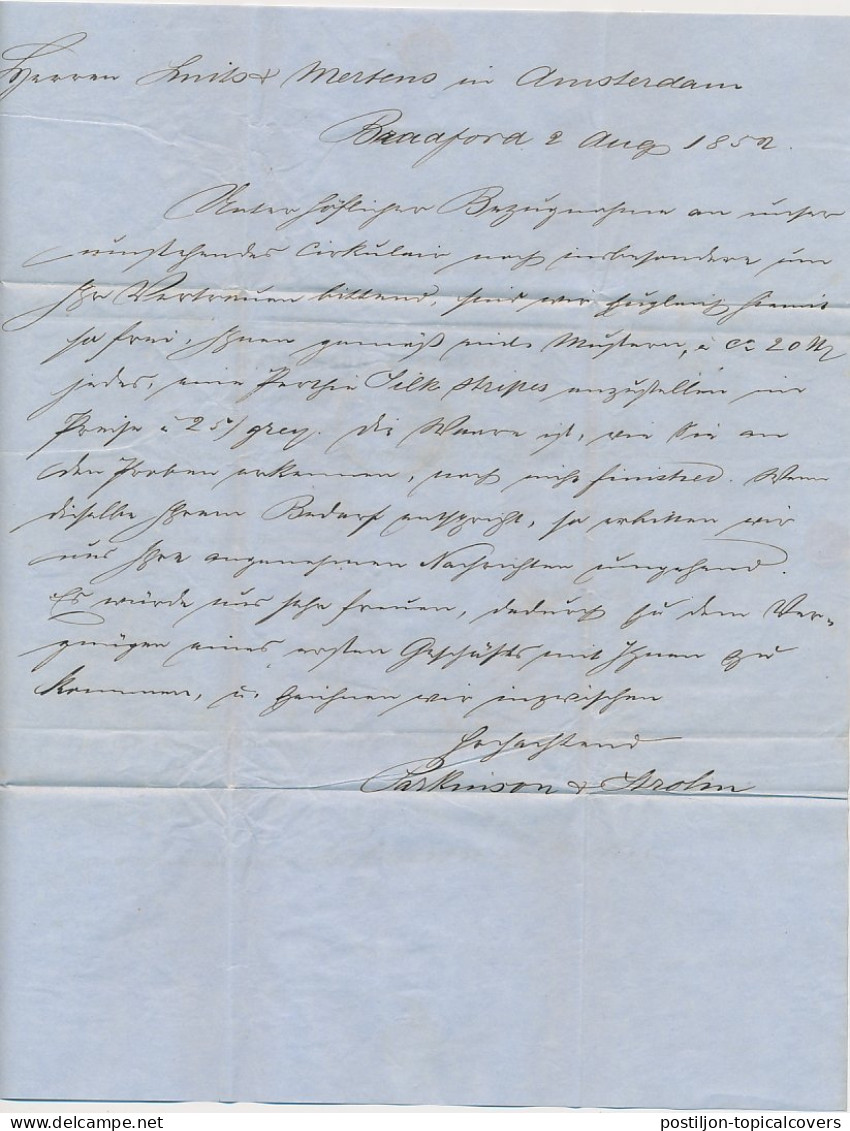 Herren Smits & Mertens in Amsterdam
Bradford 2 Aug 1852.
Unter höflicher Bezugnahme an unser
umstehendes Cirkulair noch insbesondere um
Ihr Vertrauen bittend, sind wir zugleich hiemit
so frei, Ihnen gemäß Mustern, à ca 20
jedes, eine Parthie Silk stripes anzustellen im
Preise à 25/ grey. Die Waare ist, wie Sie an
den Proben erkennen, noch nicht finished. Wenn
dieselbe Ihrem Bedarf entspricht, so erbitten wir
uns Ihre angenehmen Nachrichten umgehend.
Es würde uns sehr freuen, dadurch zu dem Ver-
gnügen eines ersten Geschäfts mit Ihnen zu
kommen, u. zeichnen wir inzwischen
Hochachtend
Parkinson &
postiljon-topicalcovers